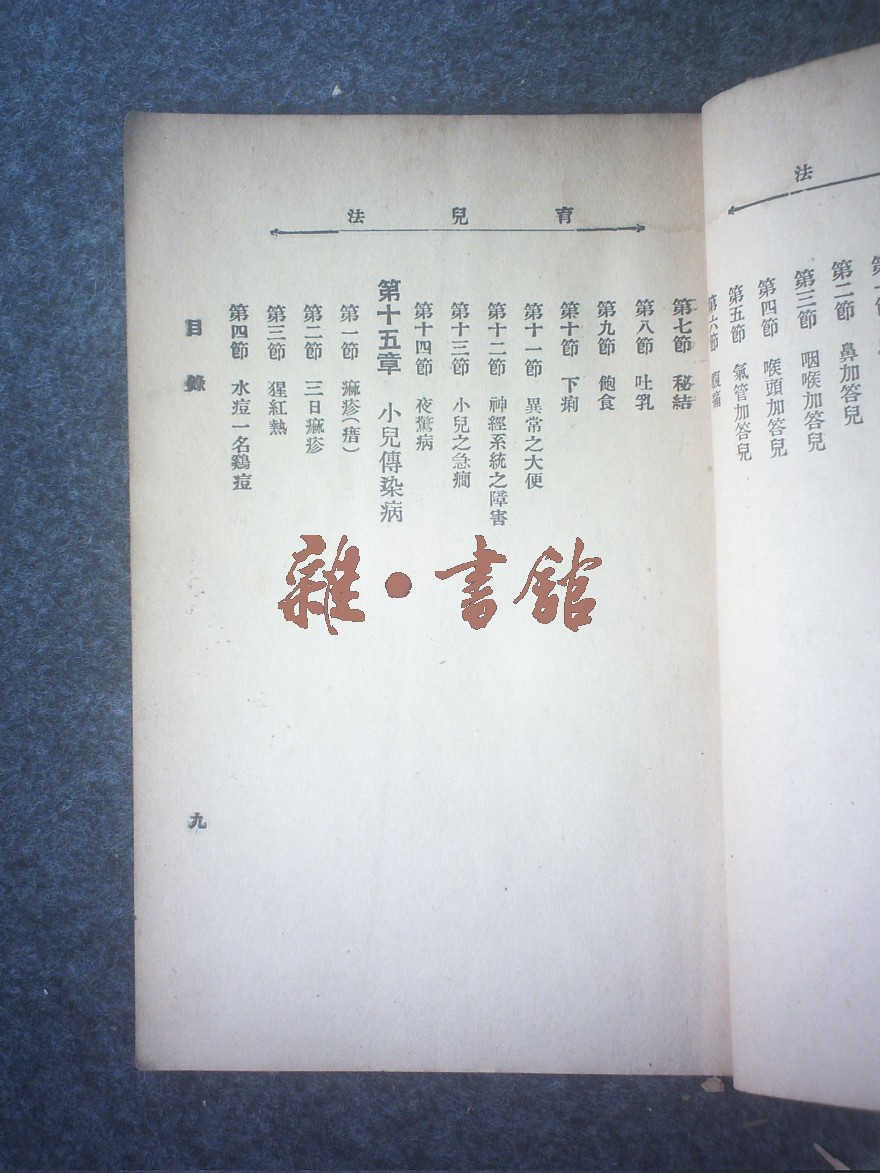 法
第二節　鼻加答兒
第三節　咽喉加答兒
第四節　喉頭加答兒
第五節　氣管加答兒
第六節　腹痛
育兒法
第七節　秘結
第八節　吐乳
第九節　飽食
第十節　下痢
第十一節　異常之大便
第十二節　神經系統之障害
第十三節　小兒之急癇
第十四節　夜驚病
第十五章　小兒傳染病
第一節　痲疹(瘄)
第二節　三日痲疹
第三節　猩紅熱
第四節　水痘一名鷄痘
目錄
九
雜·書館